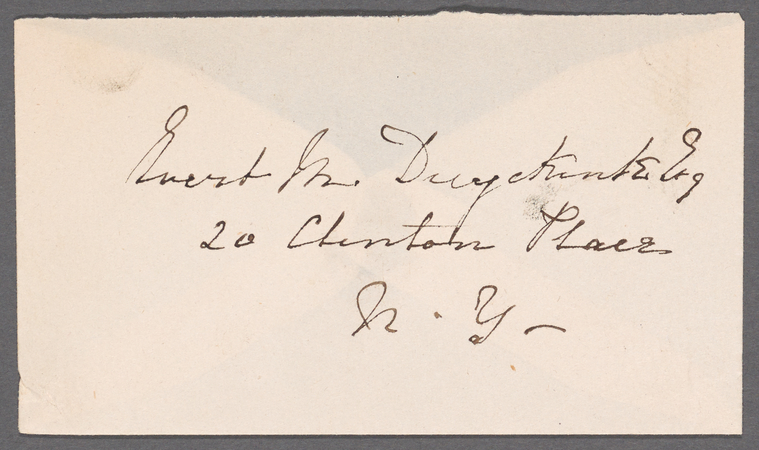 Evert M. Duyckink Esq
20 Clinton Place
N. Y.